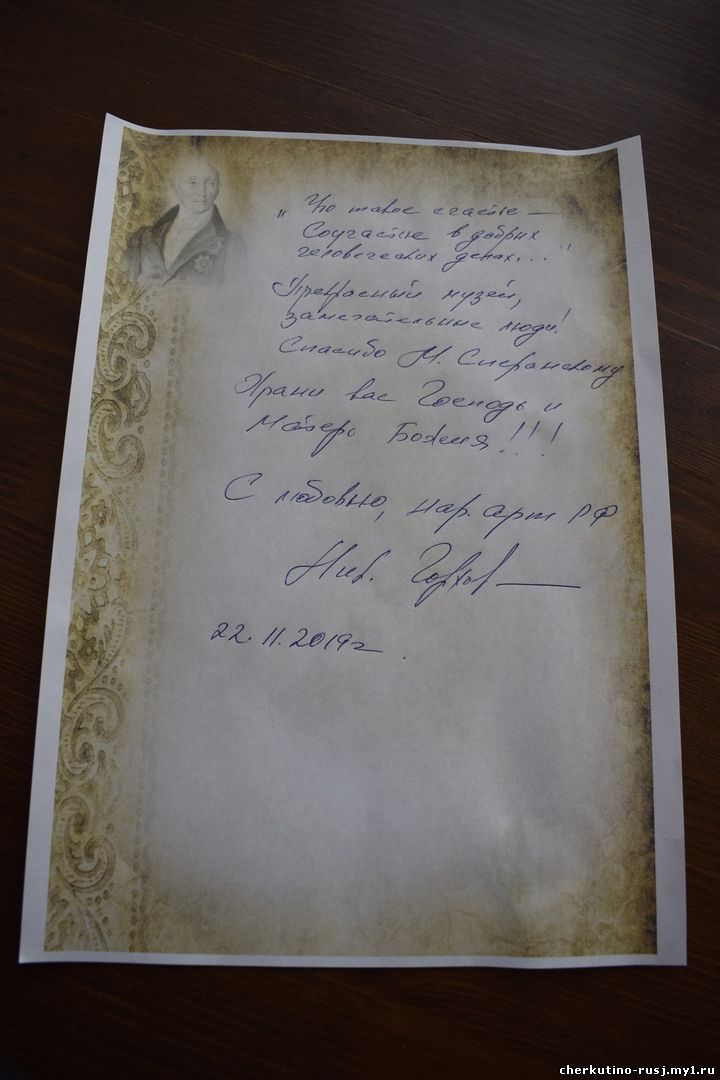 „Что такое счастье —
Соучастье в добрых
человеческих делах..."
Прекрасный музей,
замечательные люди!
Спасибо М. Сперанскому
Храни вас Господь и
Матерь Божия!!!
С любовью, нар. арт РФ
22.11.2019г
cherkutino-rusj.my1.ru